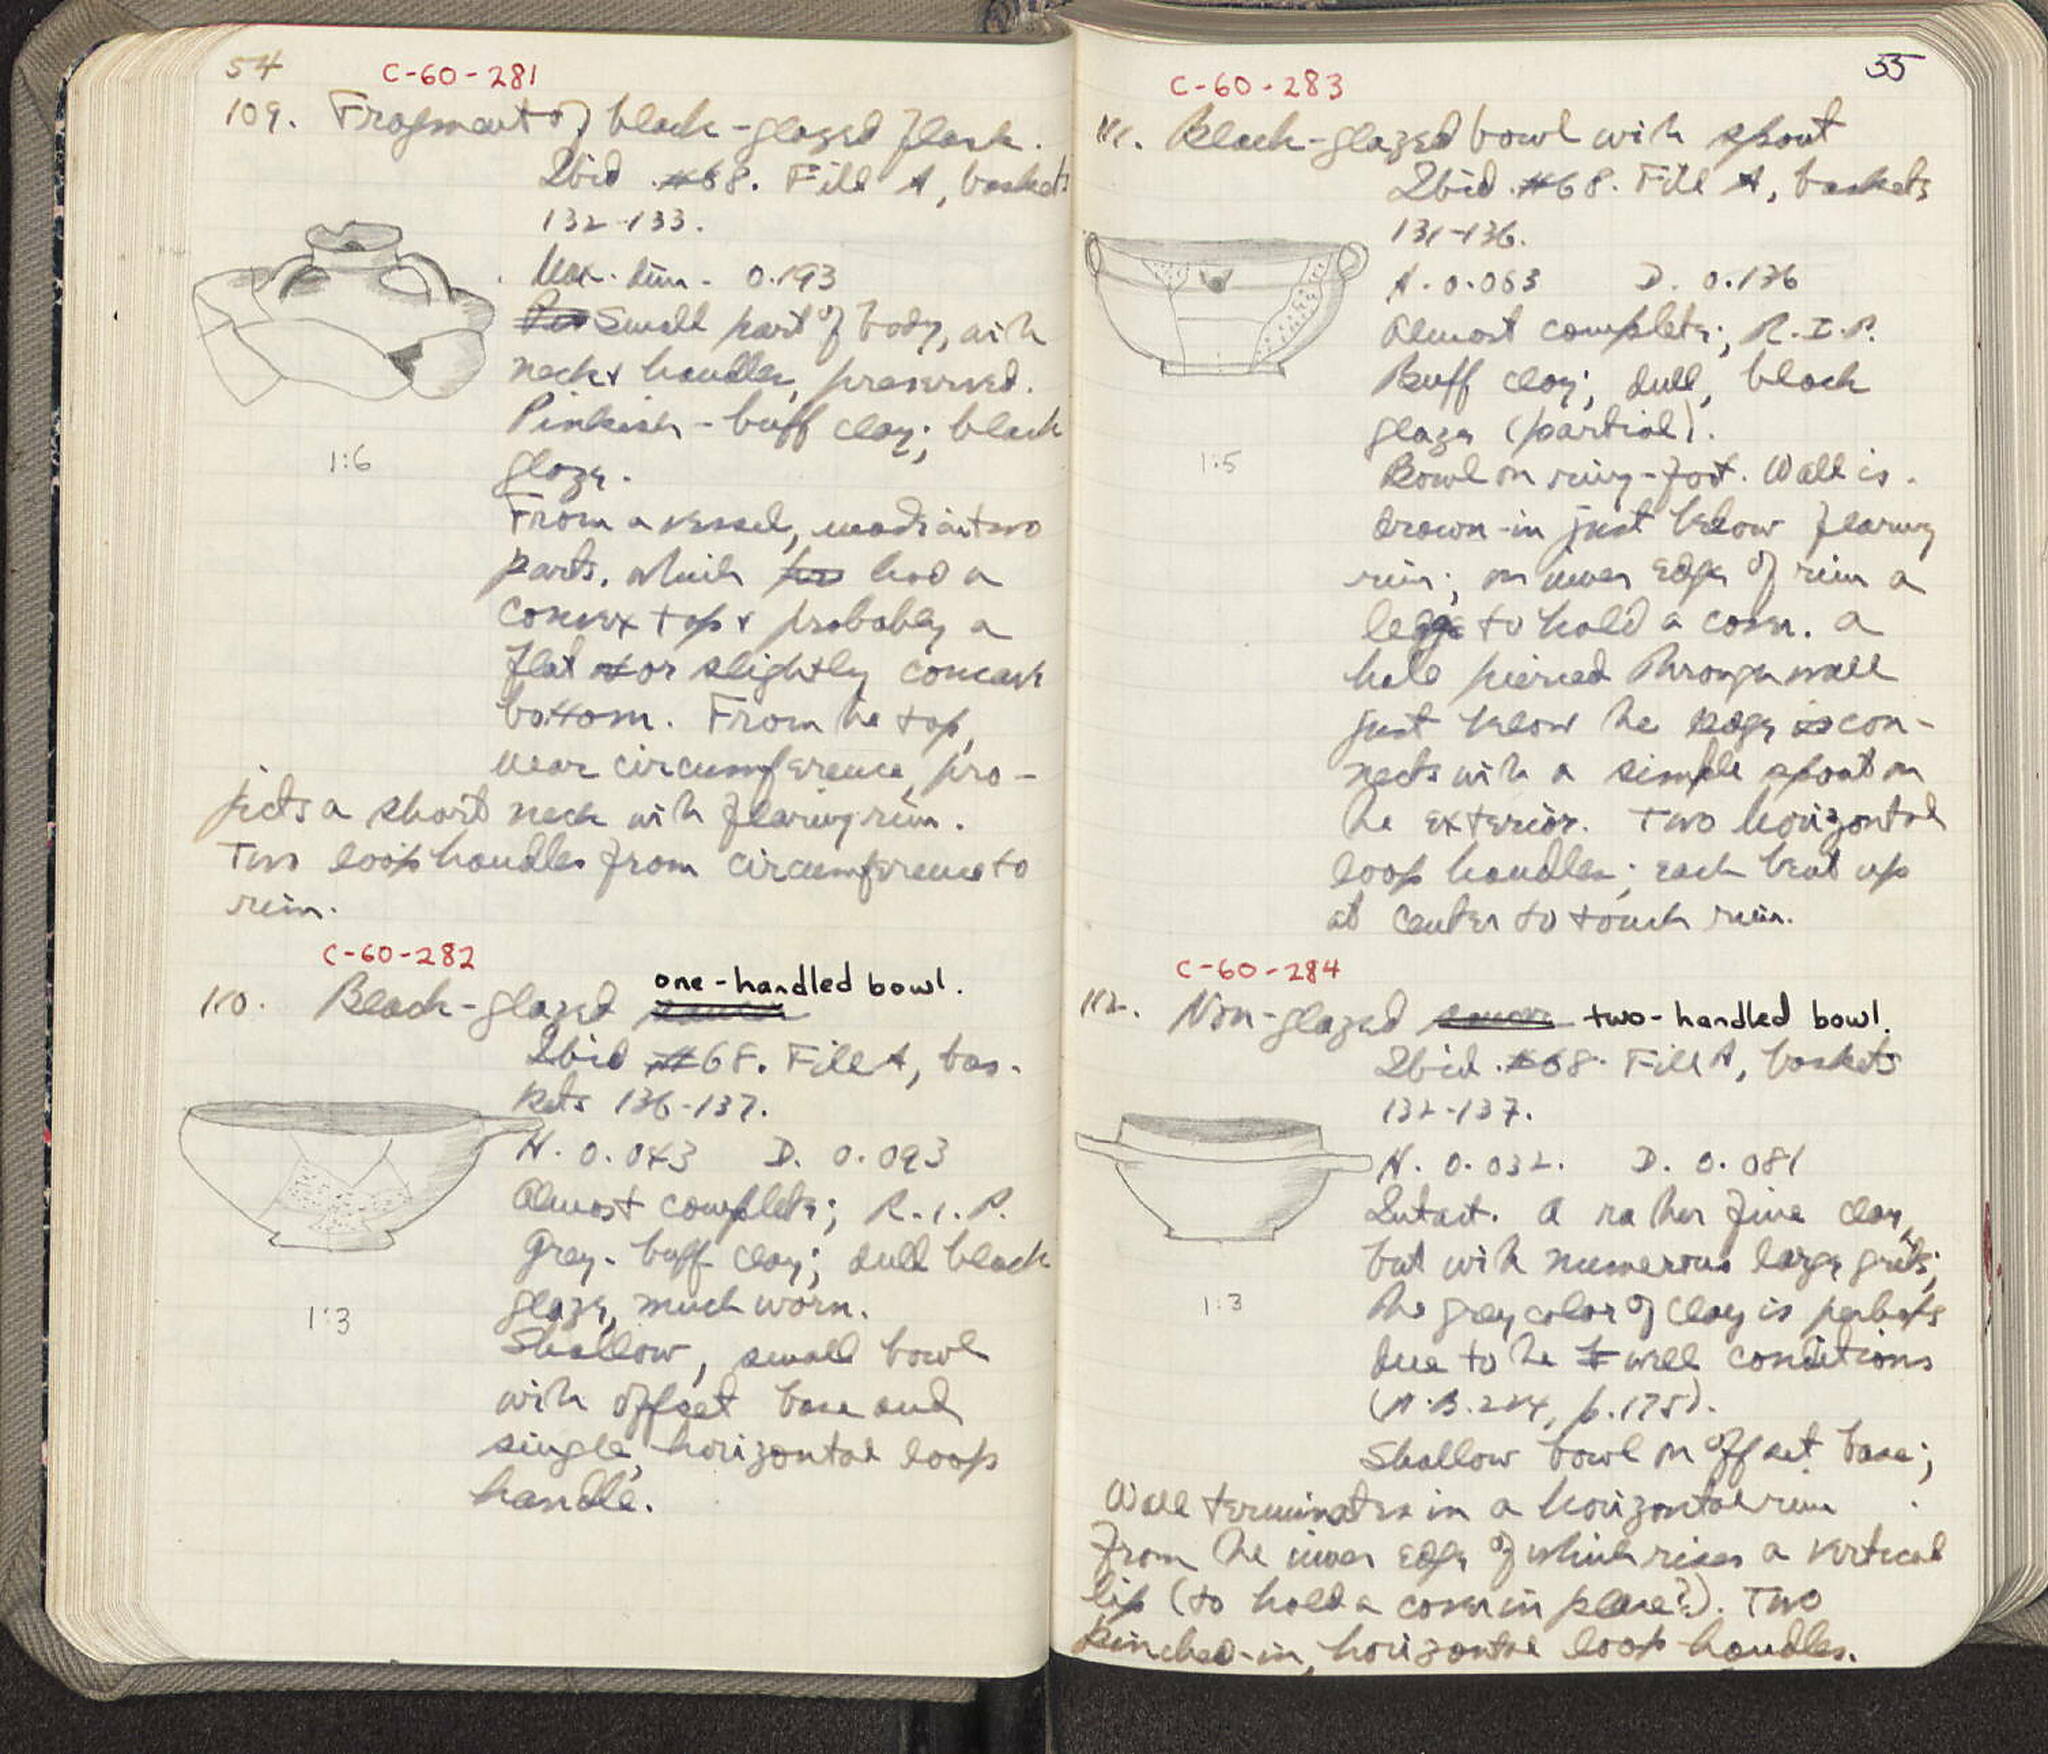 54
C-60-281
109. Fragment of black-glazed flask.
Ibid #68. Fill A, baskets
132-133.
Max. dim. 0.193
Small part of body, with
neck & handles, preserved.
Pinkish-buff clay; black
glaze.
From a vessel, made in two
parts, which had a
convex top & probably a
flat or slightly concave
bottom. From the top,
near circumference, pro-
jects a short neck with flaring rim.
Two loop handles from circumference to
rim.
C-60-282
110. Black-glazed one-handled bowl.
Ibid #68. Fill A, bas-
kets 136-137.
H. 0.043 D. 0.093
Almost complete; R.I.P.
Grey-buff clay; dull black
glaze, much worn.
Shallow, small bowl
with offset base and
single, horizontal loop
handle.
1:6
1:3
55
C-60-283
111. Black-glazed bowl with spout
Ibid #68. Fill A, baskets
131-136.
H. 0.053 D. 0.136
Almost complete; R.I.P.
Buff clay; dull, black
glaze (partial).
Bowl on ring-foot. Wall is
drawn-in just below flaring
rim; on inner edge of rim a
ledge to hold a cover. A
hole pierced through wall
just below the edge con-
nects with a simple spout on
the exterior. Two horizontal
loop handles; each bent up
at center to touch rim.
C-60-284
112. Non-glazed two-handled bowl.
Ibid #68. Fill A, baskets
132-137.
H. 0.032. D. 0.081
Intact. A rather fine clay,
but with numerous large grits;
the grey color of clay is perhaps
due to the well conditions
(N.B. 224, p. 175).
Shallow bowl on offset base;
Wall terminates in a horizontal rim
from the inner edge of which rises a vertical
lip (to hold a cover in place?). Two
pinched-in, horizontal loop handles.
1:5
1:3